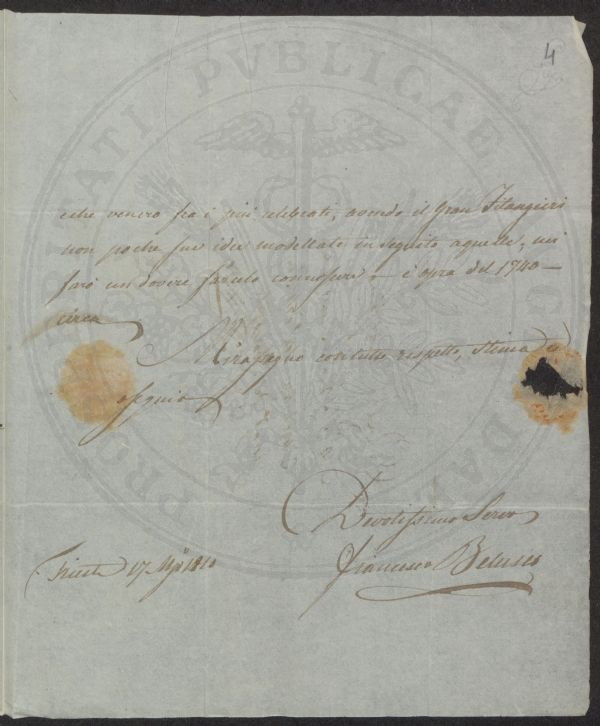 4
che venero fra i più celebrati, avendo il Gran Filangieri
non poche sue idee modellate in seguito a quelle, mi
farò un dovere farvelo conoscere - è opra del 1740 —
circa
Mi rassegno con tutto rispetto, stima ed
ossequio
Devotissimo Servo
Francesco
Trieste 17 1810